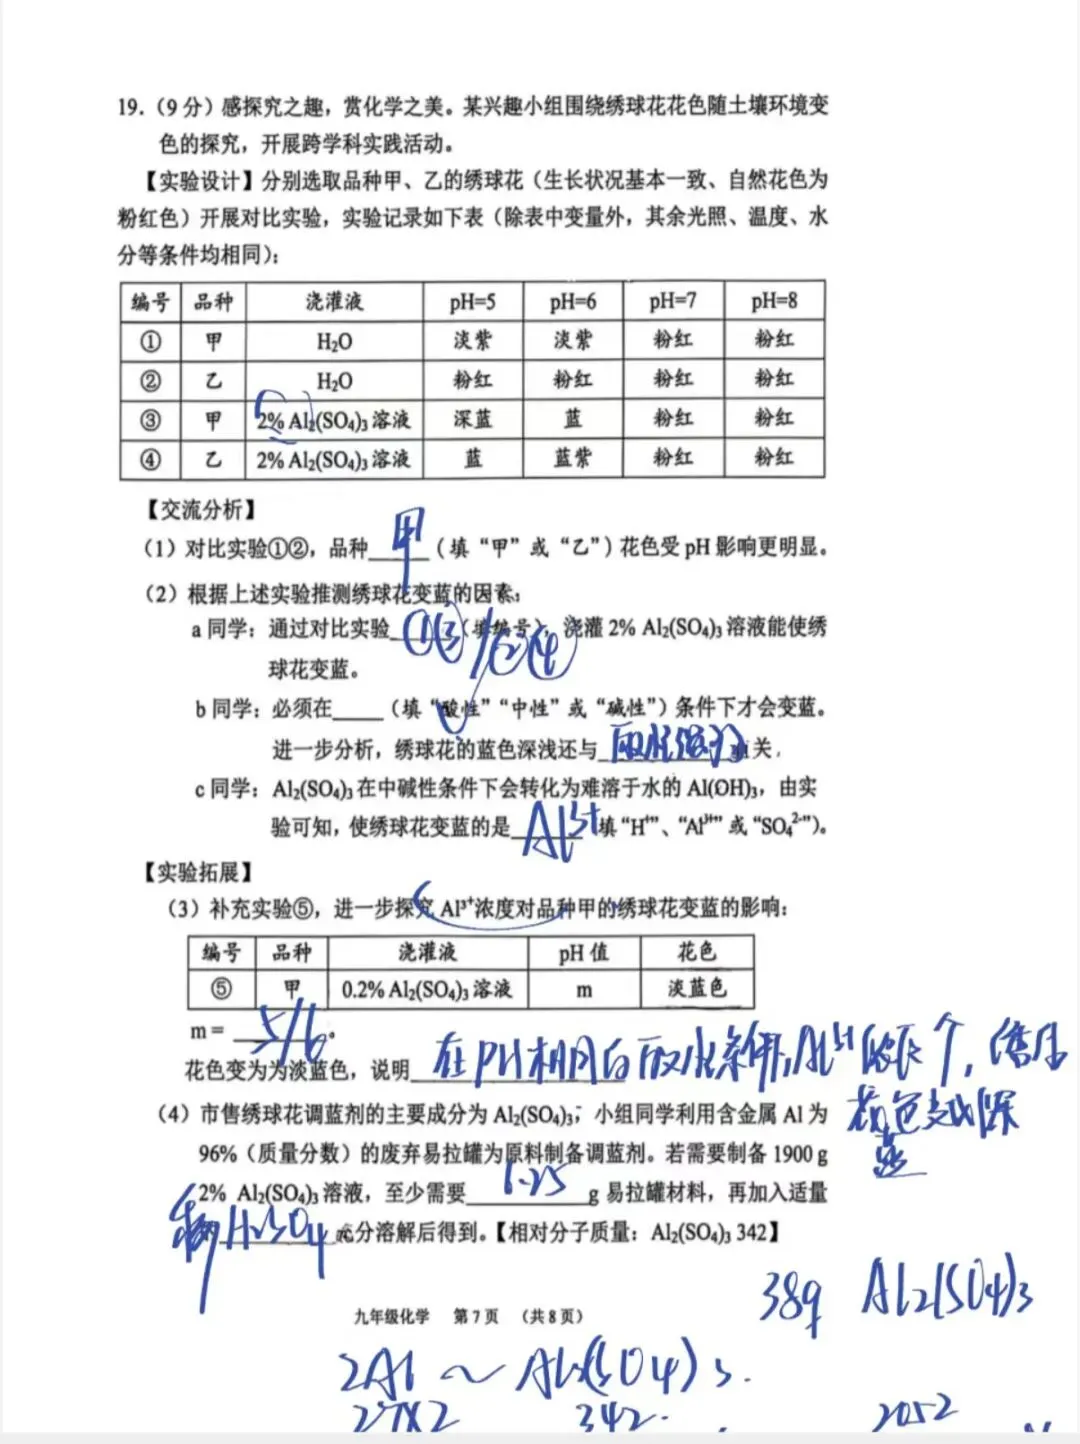 19.（9 分）感探究之趣，赏化学之美。某兴趣小组围绕绣球花花色随土壤环境变
色的探究，开展跨学科实践活动。
【实验设计】分别选取品种甲、乙的绣球花（生长状况基本一致、自然花色为
粉红色）开展对比实验，实验记录如下表（除表中变量外，其余光照、温度、水
分等条件均相同）：
编号 品种 浇灌液 pH=5 pH=6 pH=7 pH=8
① 甲 H₂O 淡紫 淡紫 粉红 粉红
② 乙 H₂O 粉红 粉红 粉红 粉红
③ 甲 2% Al₂(SO₄)₃ 溶液 深蓝 蓝 粉红 粉红
④ 乙 2% Al₂(SO₄)₃ 溶液 蓝 蓝紫 粉红 粉红
【交流分析】
（1）对比实验①②，品种 甲 （填“甲”或“乙”）花色受 pH 影响更明显。
（2）根据上述实验推测绣球花变蓝的因素：
a 同学：通过对比实验 ①③/②④ （填编号），浇灌 2% Al₂(SO₄)₃ 溶液能使绣
球花变蓝。
b 同学：必须在____（填“酸性”“中性”或“碱性”）条件下才会变蓝。
进一步分析，绣球花的蓝色深浅还与 酸性强弱 有关，
c 同学：Al₂(SO₄)₃ 在中碱性条件下会转化为难溶于水的 Al(OH)₃，由实
验可知，使绣球花变蓝的是 Al³⁺ 填“H⁺”、“Al³⁺”或“SO₄²⁻”）。
【实验拓展】
（3）补充实验⑤，进一步探究 Al³⁺浓度对品种甲的绣球花变蓝的影响：
编号 品种 浇灌液 pH 值 花色
⑤ 甲 0.2% Al₂(SO₄)₃ 溶液 m 淡蓝色
m = 5/6 。
花色变为为淡蓝色，说明 在PH相同白酸性条件下，Al³⁺浓度个，绣球
花色变成深
蓝
（4）市售绣球花调蓝剂的主要成分为 Al₂(SO₄)₃，小组同学利用含金属 Al 为
96%（质量分数）的废弃易拉罐为原料制备调蓝剂。若需要制备 1900 g
2% Al₂(SO₄)₃ 溶液，至少需要 6.25 g 易拉罐材料，再加入适量
稀H₂SO₄ 充分溶解后得到。【相对分子质量：Al₂(SO₄)₃ 342】
38g Al₂(SO₄)₃
九年级化学 第 7 页 （共 8 页）
2Al ~ Al₂(SO₄)₃.
27×2 342. 2052